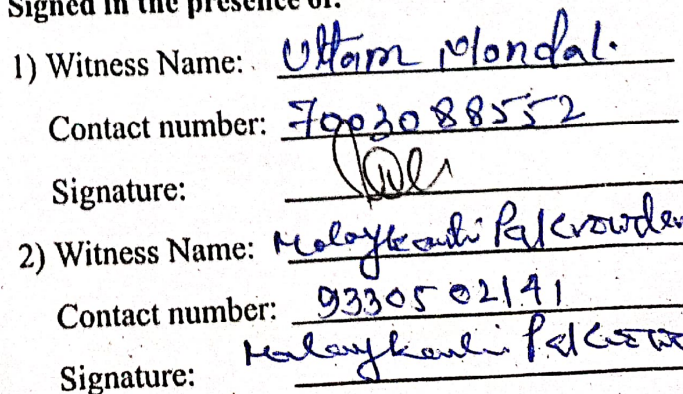 Signed in the presence of:
1) Witness Name: Uttam Mondal.
Contact number: 7003088552
Signature:
2) Witness Name: Malaykanti Palchowder
Contact number: 9330502141
Signature: Malaykanti